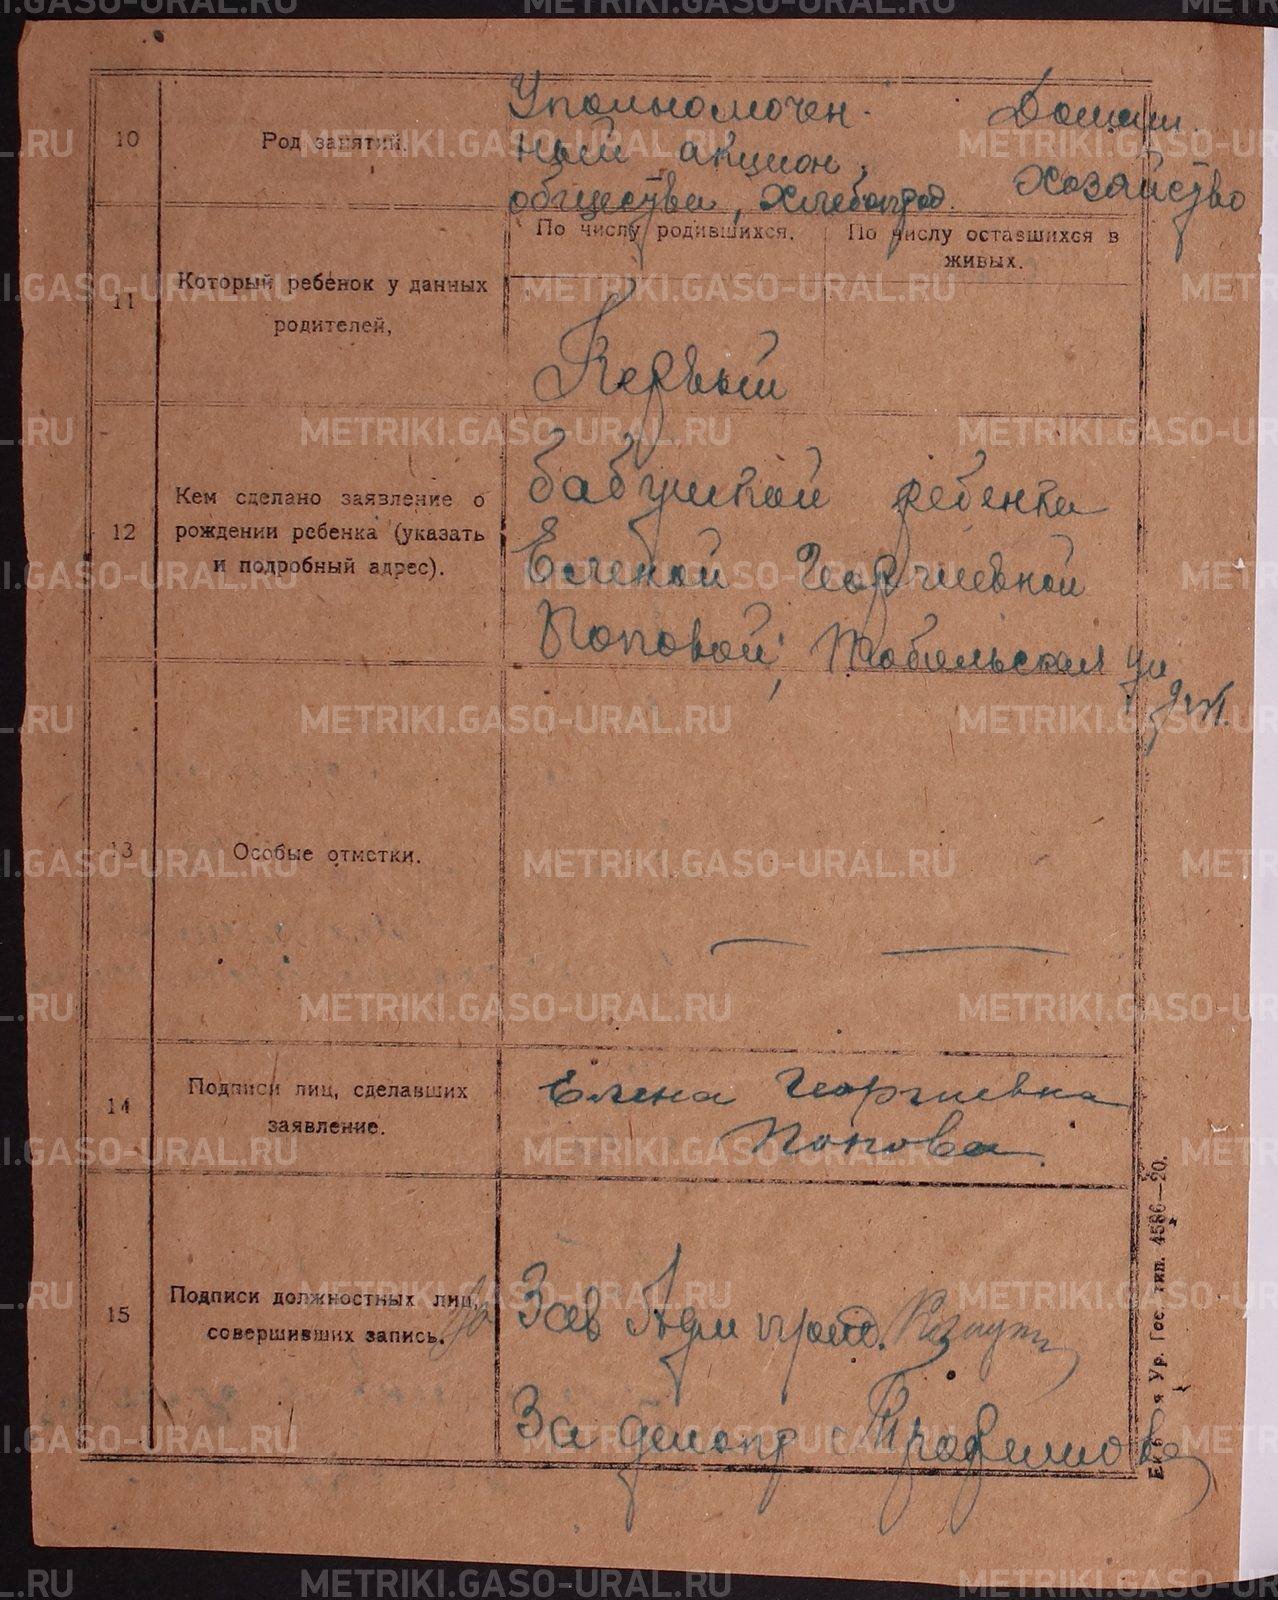 10
Род занятий.
Уполномочен-
ный акцион.
общества, Хлебопрод.
Домашн.
хозяйство
11
Который ребенок у данных
родителей,
По числу родившихся.
По числу оставшихся в
живых.
Первый
12
Кем сделано заявление о
рождении ребенка (указать
и подробный адрес).
бабушкой ребенка
Еленой Георгиевной
Поповой, Тобольская ул
13
Особые отметки.
14
Подписи лиц, сделавших
заявление.
Елена Георгиевна
Попова.
15
Подписи должностных лиц,
совершивших запись.
Зав
За делопр Трофимова
Ур. Гос. тип. 4586—20.
METRIKI.GASO-URAL.RU